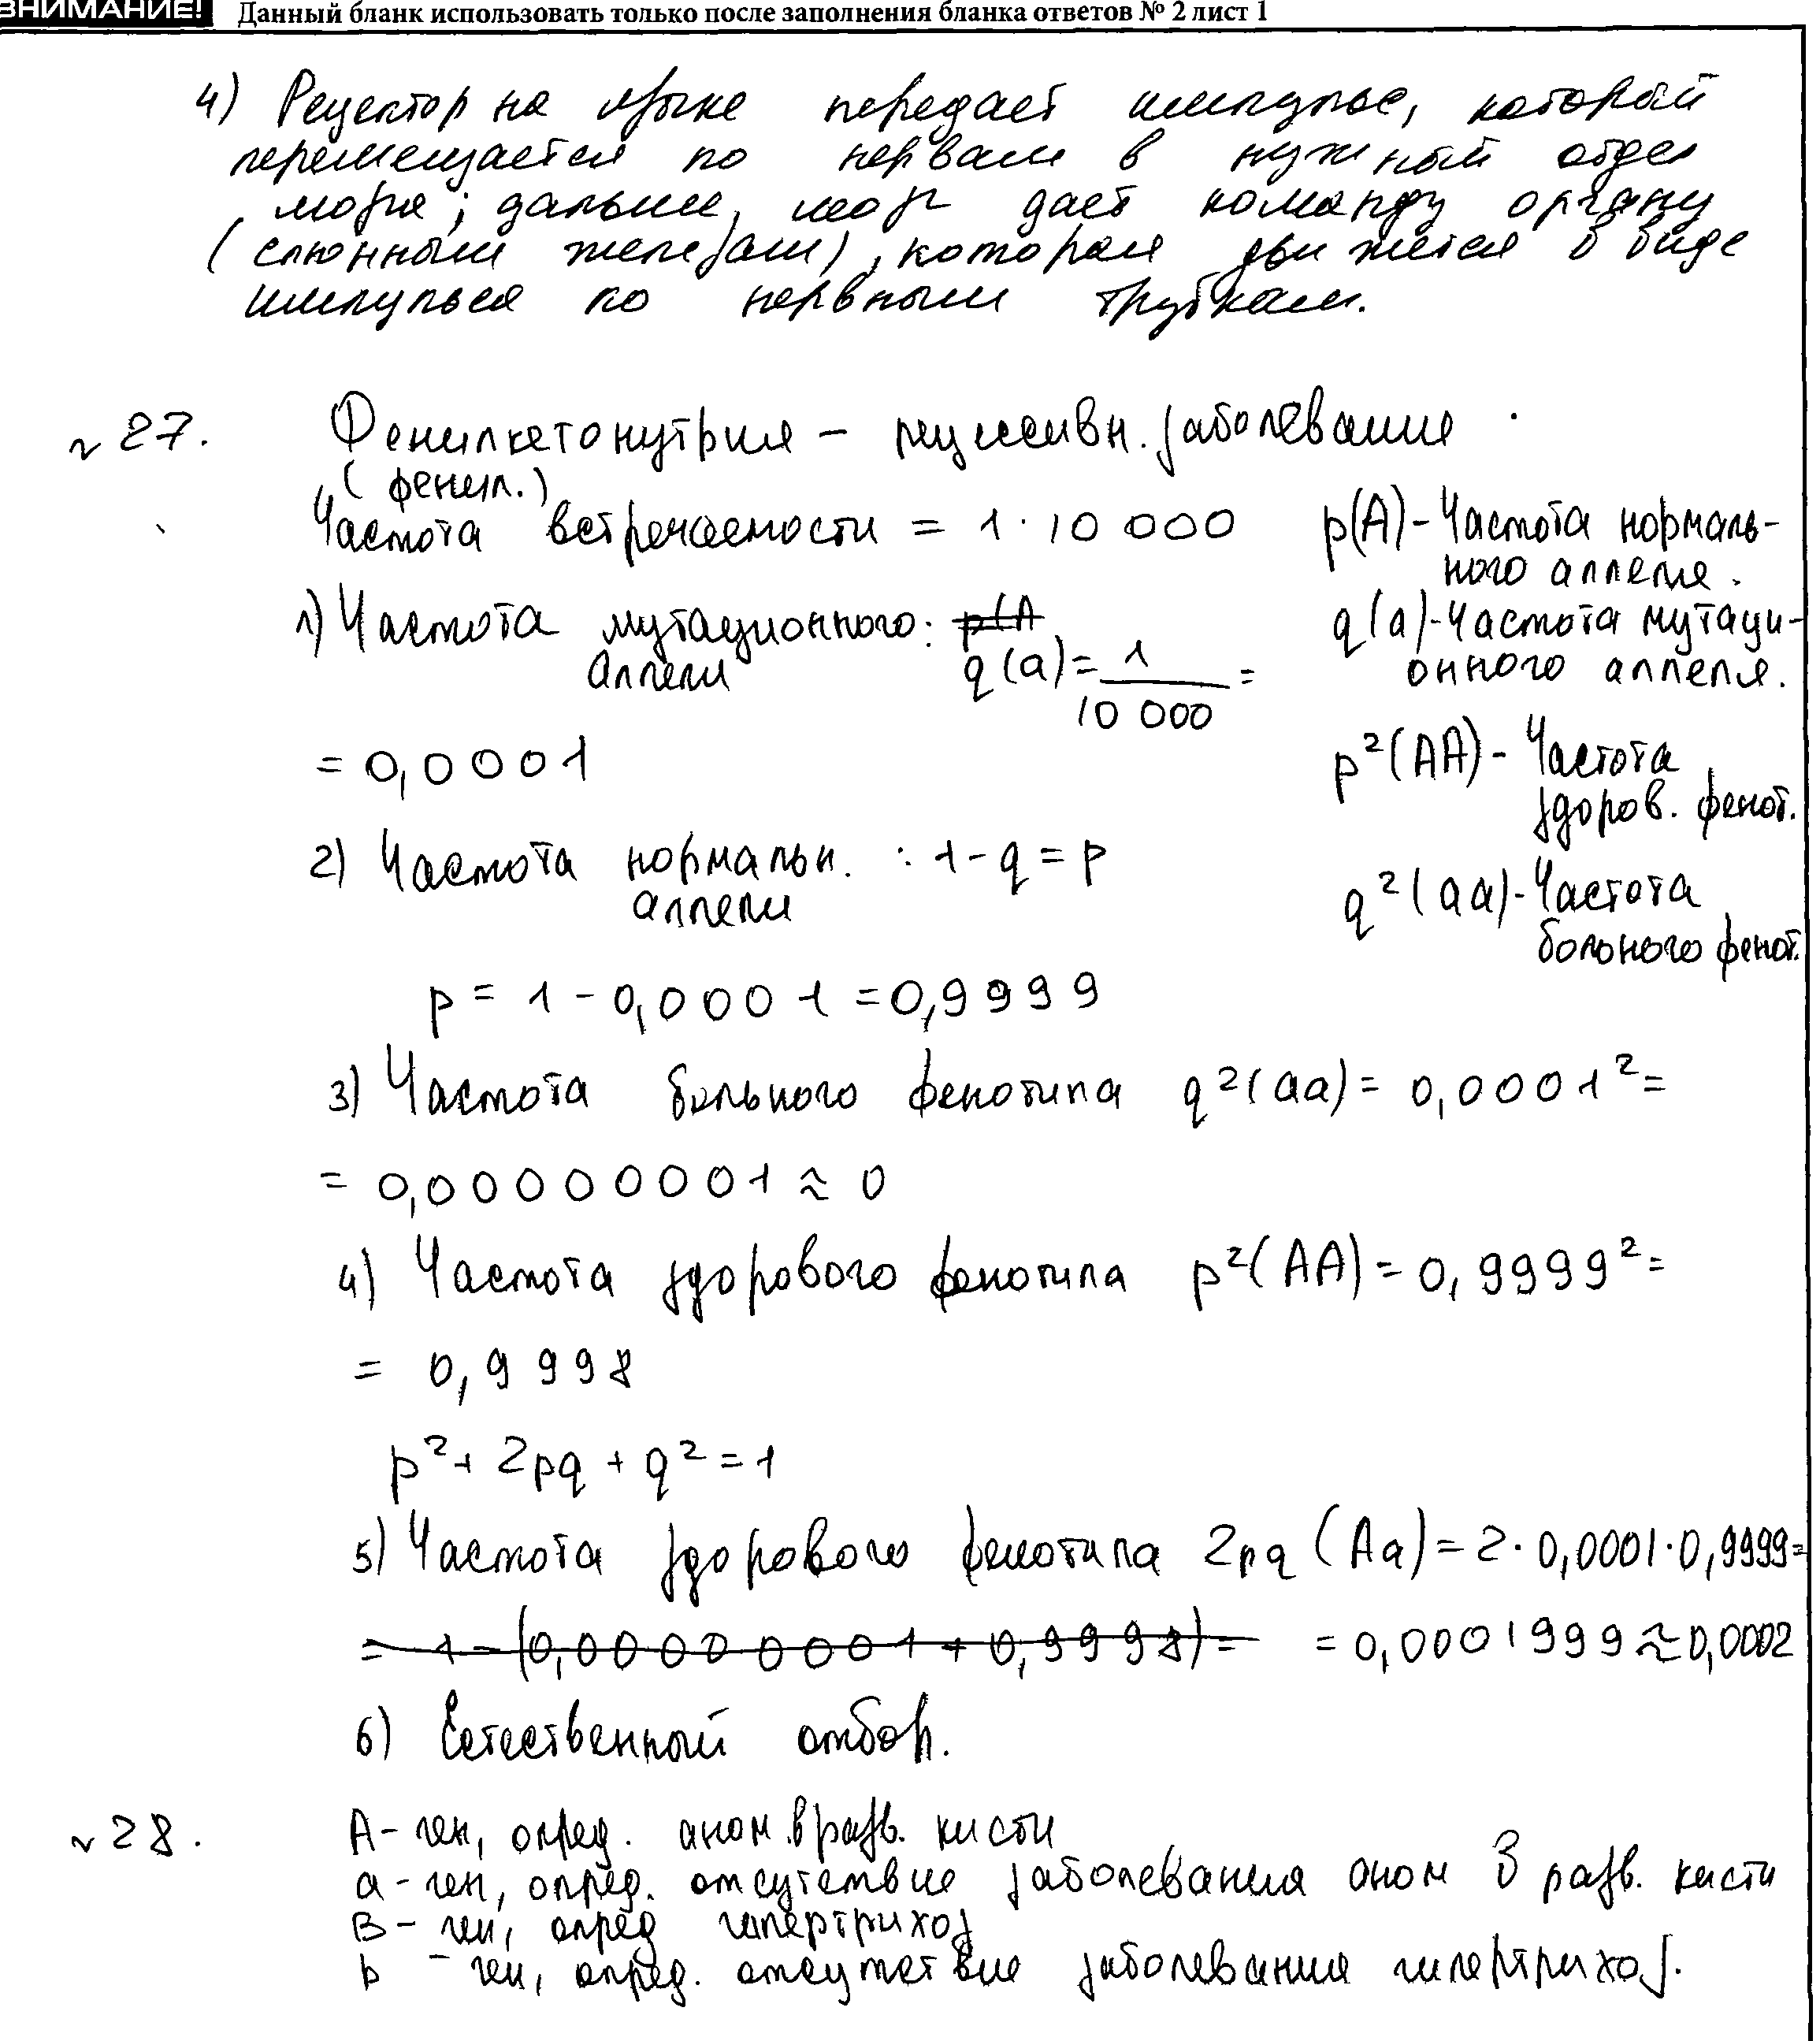 ВНИМАНИЕ! Данный бланк использовать только после заполнения бланка ответов № 2 лист 1
4) Рецептор на языке передает импульс, который
перемещается по нервам в нужный отдел
мозга; дальше, мозг дает команду органу
(слюнным железам), которая движется в виде
импульса по нервным трубкам.
№27. Фенилкетонутрия – рецессивн. заболевание
(фенил.)
Частота встречаемости = 1·10 000
p(A) - Частота нормаль-
ного аллеля.
1) Частота мутационного: p(A
аллели q(a) = 1/10 000 =
q(a) - Частота мутаци-
онного аллеля.
= 0,0001
p²(AA) - Частота
здоров. фенот.
2) Частота нормальн. : 1-q = p
аллели
q²(aa) - Частота
больного фенот.
p = 1 - 0,0001 = 0,9999
3) Частота больного фенотипа q²(aa) = 0,0001² =
= 0,00000001 ≈ 0
4) Частота здорового фенотипа p²(AA) = 0,9999² =
= 0,9998
p² + 2pq + q² = 1
5) Частота здорового фенотипа 2pq (Aa) = 2·0,0001·0,9999 =
= 1 - (0,00000001 + 0,9998) = = 0,0001999 ≈ 0,0002
6) Естественный отбор.
№28. A - ген, опред. аном. в разв. кисти
a - ген, опред. отсутствие заболевания аном в разв. кисти
B - ген, опред гипертрихоз
b - ген, опред. отсутствие заболевания гипертрихоз.